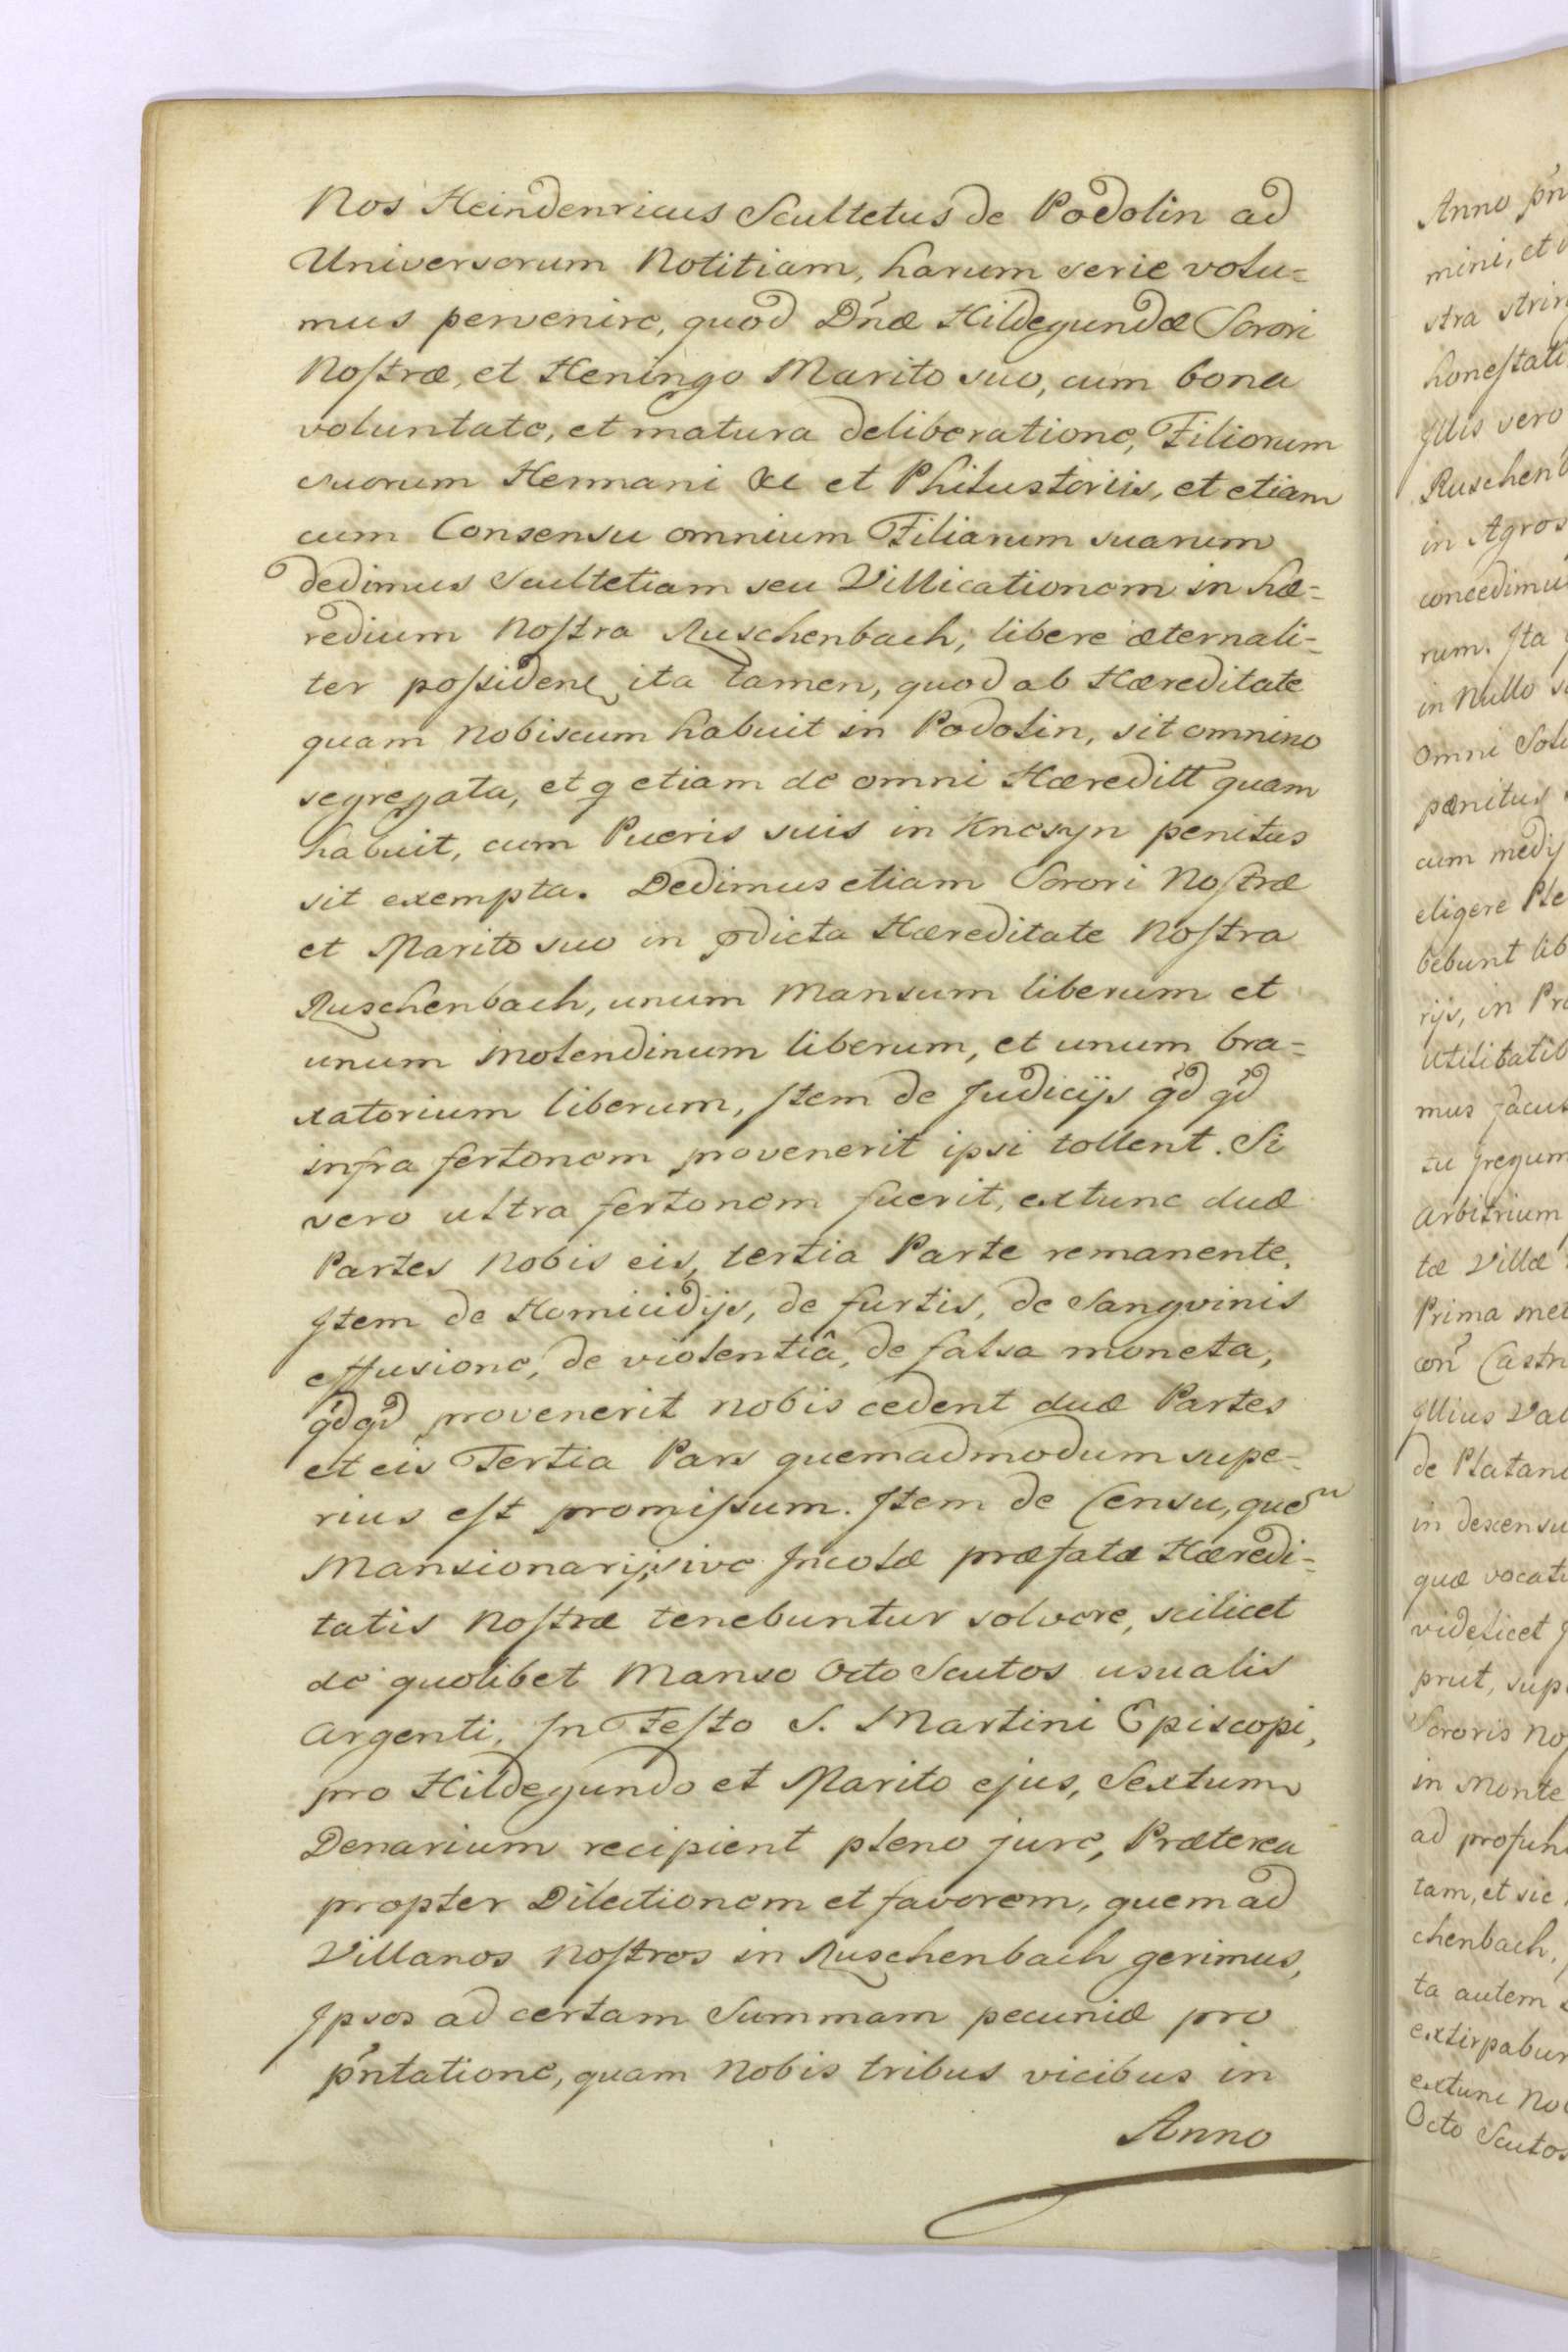 Nos Heindenricus Scultetus de Podolin ad
Universorum Notitiam, harum serie volu=
mus pervenire, quod Dnæ Hildegundæ Sorori
Nostræ, et Heningo Marito suo, cum bona
voluntate, et matura deliberatione, Filiorum
suorum Hermani et Philustoriis, et etiam
cum Consensu omnium Filiarum suarum
dedimus Scultetiam seu Villicationem in hæ=
redium Nostra Ruschenbach, libere æternali=
ter possidere ita tamen, quod ab Hæreditate
quam Nobiscum habuit in Podolin, sit omnino
segregata, et q etiam de omni Hæreditt quam
habuit, cum Pueris suis in Knesyn penitus
sit exempta. Dedimus etiam Sorori Nostræ
et Marito suo in pdicta Hæreditate Nostra
Ruschenbach, unum Mansum liberum et
unum Molendinum liberum, et unum bra=
xatorium liberum, Item de Judicijs qd qd
infra fertonem provenerit ipsi tollent. Si
vero ultra fertonem fuerit, extunc duæ
Partes Nobis eis, tertia Parte remanente.
Item de Homicidijs, de furtis, de Sangvinis
effusione, de violentiâ, de falsa moneta,
qdqd provenerit nobis cedent duæ Partes
et eis Tertia Pars quemadmodum supe=
rius est promissum. Item de Censu, quem
Mansionarij, sive Incolæ præfatæ Hæredi=
tatis Nostræ tenebuntur solvere, scilicet
de quolibet Manso Octo Scutos usualis
Argenti, In Festo S. Martini Episcopi,
pro Hildegundo et Marito ejus, Sextum
Denarium recipient pleno jure, Præterea
propter Dilectionem et favorem, quem ad
Villanos Nostros in Ruschenbach gerimus,
Ipsos ad certam Summam pecuniæ pro
pntatione, quam Nobis tribus vicibus in
Anno
Anno pn
mini, et
stra
honestati
Illis vero
Ruschenb
in Agros
concedimu
rum. Ita
in Nullo
Omni
pænitus
cum medij
eligere Ple
bebunt lib
rijs, in Pr
Utilitatib
mus
Arbitrium
tæ Villæ
Prima met
con Castr
Illius Val
de Platani
in dexensu
quæ vocatu
videlicet
prut, sup
Sororis No
in Monte
ad profun
tam, et sic
chenbach,
ta autem
extirpabun
extunc No
Octo Scutos